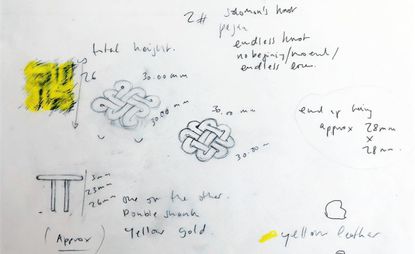 2#
solomon's knot
pagan
endless knot
no begining/no end/
endless love.
total height.
26
30.00 mm
30.00 mm
30.00 mm
30.00 m
end up being
approx 28mm
x
28mm.
3mm
23mm
26mm
one on the other.
Double shank
(Approx)
Yellow gold.
yellow leather